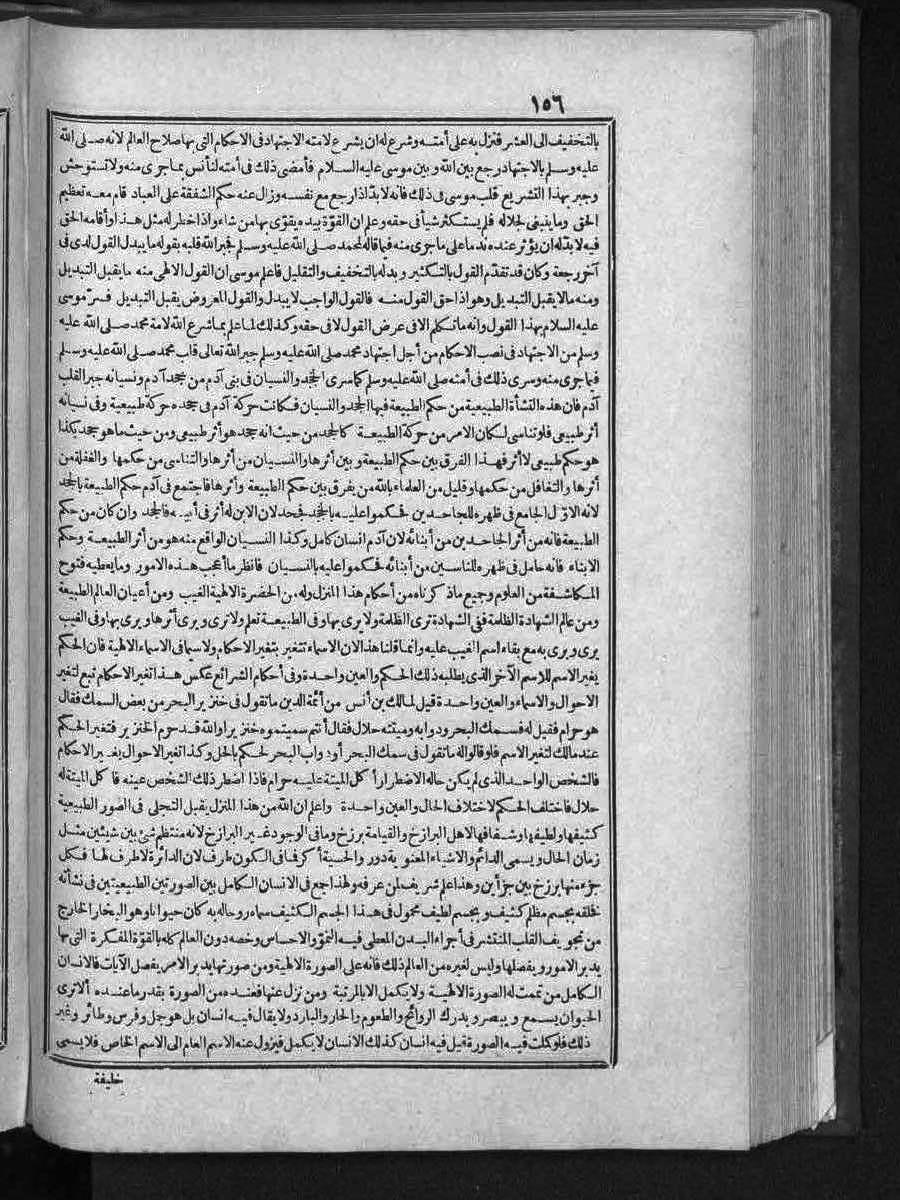 ١٥٦
بالتخفيف الى العشر فنزل به على أمته وشرع له ان يشرع لامته الاجتهاد فى الاحكام التى بها صلاح العالم لانه صلى الله
عليه وسلم بالاجتهاد رجع بين الله وبين موسى عليه السلام فأمضى ذلك فى أمته لتأنس بما جرى منه ولا تستوحش
وجبر بهذا التشريع قلب موسى فى ذلك فانه لابد اذا رجع مع نفسه وزال عنه حكم الشفقة على العباد قام معه تعظيم
الحق وما ينبغى لجلاله فلم يستكثر شيأ فى حقه وعلم ان القوة بيده يقوى بها من شاء واذا خطر له مثل هذا وأقامه الحق
فيه لابد له ان يؤثر عنده ندما على ما جرى منه فيما قاله لمحمد صلى الله عليه وسلم فجبر الله قلبه بقوله ما يبدل القول لدى فى
آخر رجعة وكان قد تقدم القول بالتكثير وبدله بالتخفيف والتقليل فاعلم موسى ان القول الالهى منه ما يقبل التبديل
ومنه ما لا يقبل التبديل وهو اذا حق القول منه فالقول الواجب لا يبدل والقول المعروض يقبل التبديل فسر موسى
عليه السلام بهذا القول وانه ما تكلم الا فى عرض القول لا فى حقه وكذلك لما علم بما شرع الله لامة محمد صلى الله عليه
وسلم من الاجتهاد فى نصب الاحكام من أجل اجتهاد محمد صلى الله عليه وسلم جبر الله تعالى قلب محمد صلى الله عليه وسلم
فيما جرى منه وسرى ذلك فى أمته صلى الله عليه وسلم كما سرى الجحد والنسيان فى بنى آدم من جحد آدم ونسيانه جبر القلب
آدم فان هذه النشأة الطبيعية من حكم الطبيعة فيها الجحد والنسيان فكانت حركة آدم فى جحده حركة طبيعية وفى نسيانه
أثر طبيعى فلو تناسى لكان الامر من حركة الطبيعة كالجحد من حيث انه جحد هو أثر طبيعى ومن حيث ما هو جحد بكذا
هو حكم طبيعى لا أثر فهذا الفرق بين حكم الطبيعة وبين أثرها والنسيان من أثرها والتناسى من حكمها والغفلة من
أثرها والتغافل من حكمها وقليل من العلماء بالله من يفرق بين حكم الطبيعة وأثرها فاجتمع فى آدم حكم الطبيعة بالجحد
لانه الاول الجامع فى ظهره للجاحدين فحكموا عليه بالجحد فجحد لان الابن له أثر فى أبيه فالجحد وان كان من حكم
الطبيعة فانه من أثر الجاحدين من أبنائه لان آدم انسان كامل وكذا النسيان الواقع منه هو من أثر الطبيعة وحكم
الابناء فانه حامل فى ظهره للناسين من أبنائه فحكموا عليه بالنسيان فانظر ما أعجب هذه الامور وما يعطيه فتوح
المكاشفة من العلوم وجميع ما ذكرناه من أحكام هذا المنزل وله من الحضرة الالهية الغيب ومن أعيان العالم الطبيعة
ومن عالم الشهادة الظلمة ففى الشهادة ترى الظلمة ولا يرى بها وفى الطبيعة تعلم ولا ترى ويرى أثرها ويرى بها وفى الغيب
يرى ويرى به مع بقاء اسم الغيب عليه وانما قلنا هذا لان الاسماء تتغير بتغير الاحكام ولا سيما فى الاسماء الالهية فان الحكم
يغير الاسم للاسم الآخر الذى يطلبه ذلك الحكم والعين واحدة وفى أحكام الشرائع عكس هذا تغير الاحكام تبع لتغير
الاحوال والاسماء والعين واحدة قيل لمالك بن أنس من أئمة الدين ما تقول فى خنزير البحر من بعض السمك فقال
هو حرام فقيل له فسمك البحر ودوابه وميتته حلال فقال أنتم سميتموه خنزيرا والله قد حرم الخنزير فتغير الحكم
عند مالك لتغير الاسم فلو قالوا له ما تقول فى سمك البحر أو دواب البحر لحكم بالحل وكذا تغير الاحوال يغير الاحكام
فالشخص الواحد الذى لم يكن حاله الاضطرار أكل الميتة عليه حرام فاذا اضطر ذلك الشخص عينه فاكل الميتة له
حلال فاختلف الحكم لاختلاف الحال والعين واحدة واعلم ان الله من هذا المنزل يقبل التجلى فى الصور الطبيعية
كثيفها ولطيفها وشفافها لاهل البرازخ والقيامة برزخ وما فى الوجود غير البرازخ لانه منتظم شئ بين شيئين مثل
زمان الحال ويسمى الدائم والاشياء المعنوية دور والحسية أكر فما فى الكون طرف لان الدائرة لا طرف لها فكل
جزء منها برزخ بين جزأين وهذا علم شريف لمن عرفه ولهذا جمع فى الانسان الكامل بين الصورتين الطبيعيتين فى نشأته
خلقه بجسم مظلم كثيف وبجسم لطيف محمول فى هذا الجسم الكثيف سماه روحا له به كان حيوانا وهو البخار الخارج
من تجويف القلب المنتشر فى أجزاء البدن المعطى فيه النمو والاحساس وخصه دون العالم كله بالقوة المفكرة التى بها
يدبر الامور ويفصلها وليس لغيره من العالم ذلك فانه على الصورة الالهية ومن صورتها يدبر الامر يفصل الآيات فالانسان
الكامل من تمت له الصورة الالهية ولا يكمل الا بالمرتبة ومن نزل عنها فعنده من الصورة بقدر ما عنده ألا ترى
الحيوان يسمع ويبصر ويدرك الروائح والطعوم والحار والبارد ولا يقال فيه انسان بل هو جمل وفرس وطائر وغير
ذلك فلو كملت فيه الصورة قيل فيه انسان كذلك الانسان لا يكمل فيزول عنه الاسم العام الى الاسم الخاص فلا يسمى
خليفة